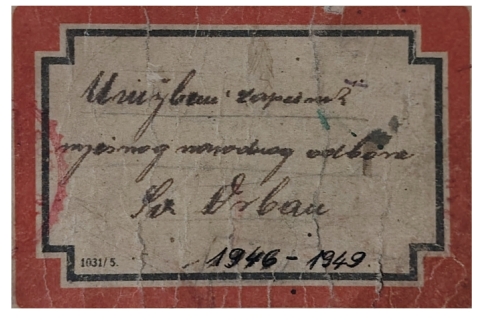 Uružbeni zapisnik
mjesnog narodnog odbora
Sv Urban
1946 - 1949.
1031/5.